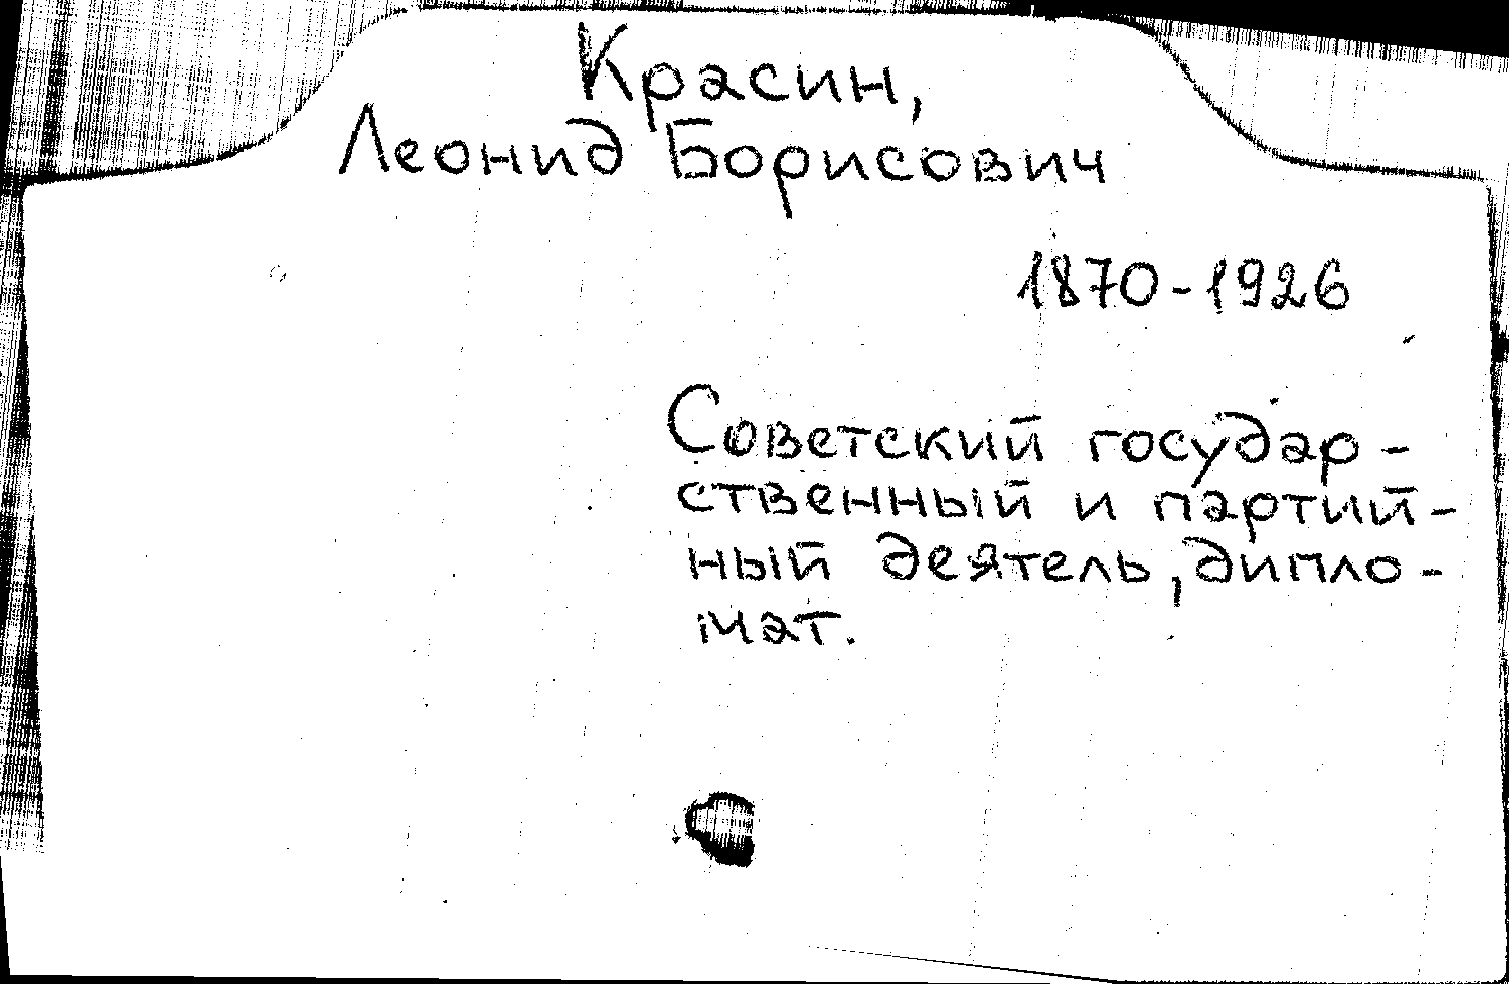 Красин,
Леонид Борисович
1870-1926
Советский государ-
ственный и партий-
ный деятель, дипло-
мат.